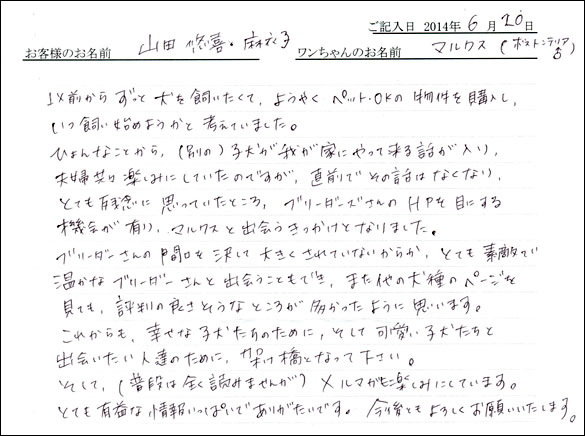 ご記入日 2014年 6月 20日
お客様のお名前 山田 悠喜・麻衣子 ワンちゃんのお名前 マルクス (ボストンテリア ♂)
以前から ずっと 犬を飼いたくて、ようやく ペット・OKの 物件を購入し、
いつ飼い始めようかと 考えていました。
ひょんなことから、(別の) 子犬が我が家にやって来る話が入り、
夫婦共々楽しみにしていたのですが、直前でその話はなくなり、
とても残念に 思っていたところ、ブリーダーズさんの HPを目にする
機会が有り、マルクスと出会うきっかけとなりました。
ブリーダーさんの 間口を 決して 大きくされていないからか、とても 素敵で
温かな ブリーダー さんと 出会うこともでき、また 他の 犬種の ページを
見ても、評判の良さそうな ところが 多かったように 思います。
これからも、幸せな 子犬たちのために、そして 可愛い 子犬たちと
出会いたい 人達のために、架け橋となって下さい。
そして、(普段は全く読みませんが) メルマガも楽しみにしています。
とても 有益な 情報いっぱいで ありがたいです。今後ともよろしくお願いいたします。